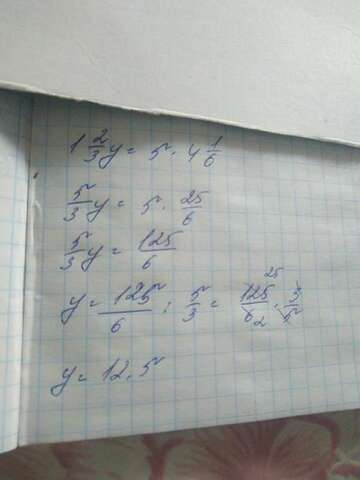 1 2/3 y = 5 · 4 1/6
5/3 y = 5 · 25/6
5/3 y = 125/6
y = 125/6 : 5/3 = 125/6 · 3/5 25 2
y = 12.5